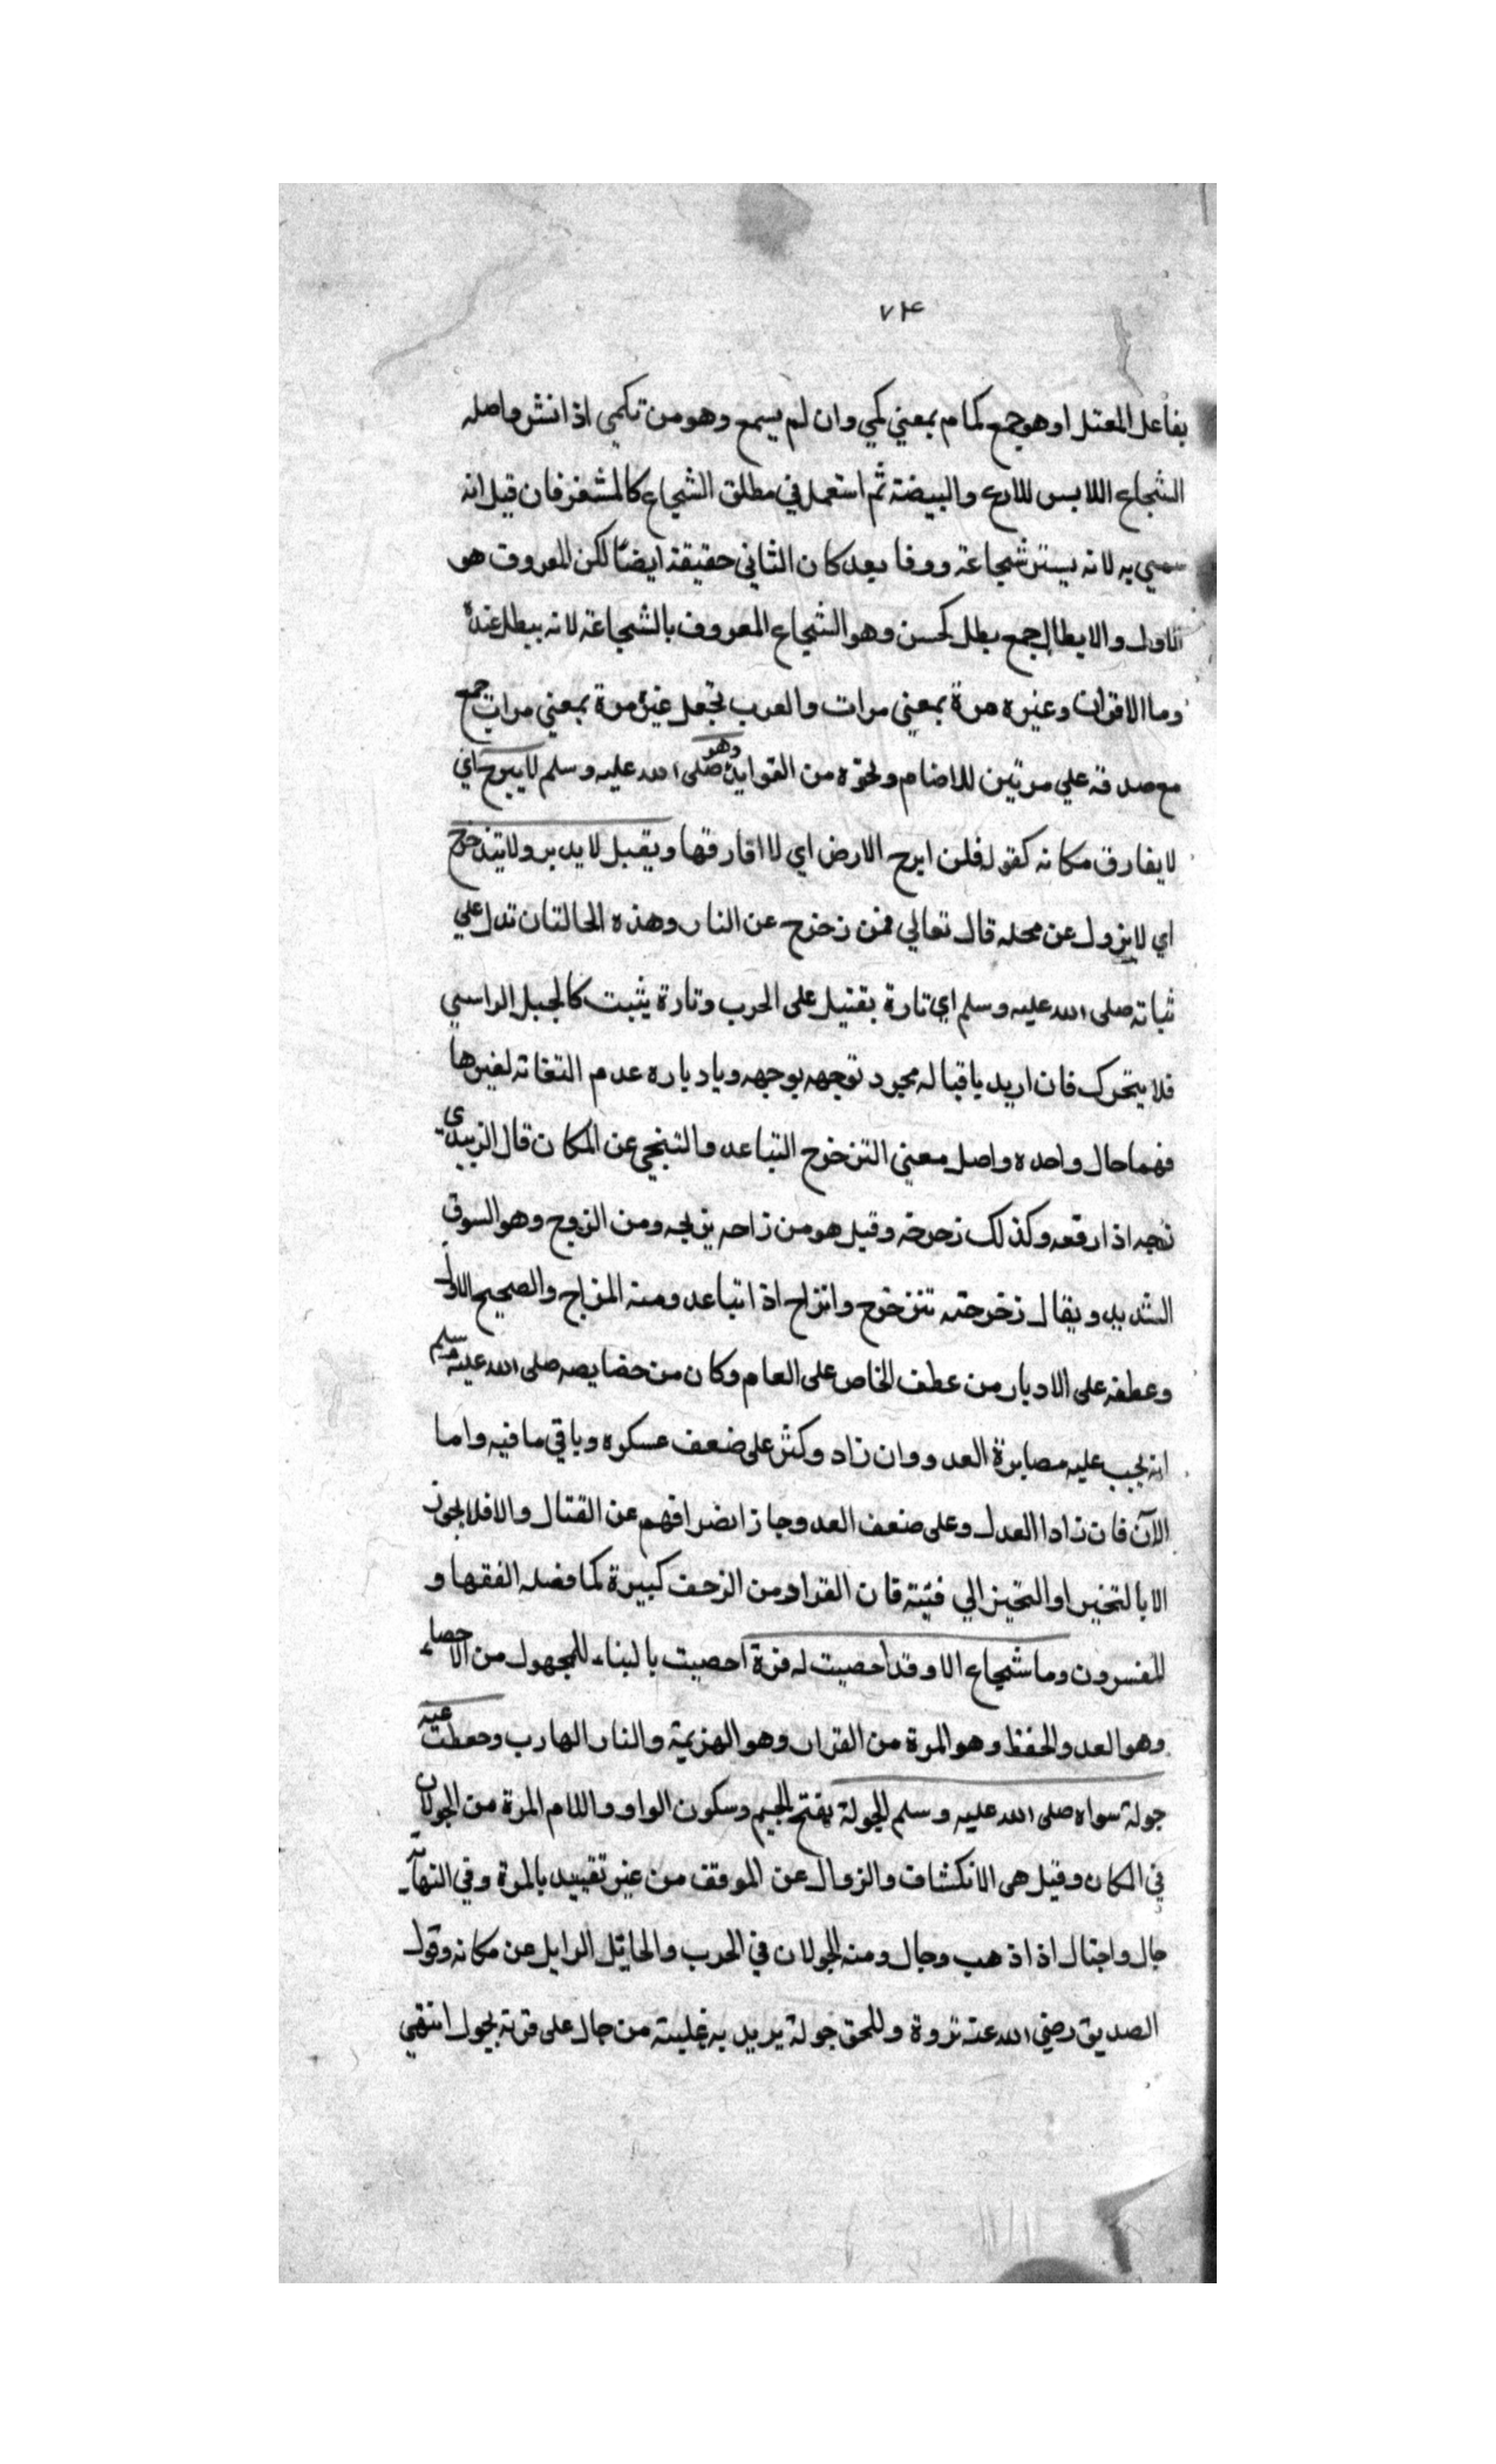 ٧٤
بفاعل المعتل او هو جمع كمام بمعني كمي وان لم يسمع وهو من تكمي اذا انشر واصله
الشجاع اللابس للدرع والبيضة ثم استعمل في مطلق الشجاع كالمشغر فان قيل انه
سمي به لانه يستر شجاعة ووفا بعد كان الثاني حقيقة ايضًا لكن المعروف هو
الاول والابطال جمع بطل كحسن وهو الشجاع المعروف بالشجاعة لانه يبطل عنده
وما الاقران وغيره مرة بمعني مرات والعرب تجعل غير مرة بمعني مرات جمع
مع صدقه علي مرتين للاضام ونحوه من القواين وهو صلى الله عليه وسلم لا يبرح اي
لا يفارق مكانه كقوله فلن ابرح الارض اي لا افارقها ويقبل لا يدبر ولا يتزحزح
اي لا يزول عن محله قال تعالي فمن زحزح عن النار وهذه الحالتان تدل علي
ثباته صلى الله عليه وسلم اي تارة يقتيل على الحرب وتارة يثبت كالجبل الراسي
فلا يتحرك فان اريد باقباله مجرد توجهه بوجهه وبادباره عدم التفاته لغيرها
فهما حال واحده واصل معني التزحزح التباعد والتنحي عن المكان قال الزبيدي
زحه اذا رفعه وكذلك زحزحه وقيل هو من زاحه يزيحه ومن الزوح وهو السوق
الشديد ويقال زحزحته تتزحزح وانزاح اذا تباعد ومنه المزاح والصحيح الاول
وعطفه على الادبار من عطف الخاص على العام وكان من خصايصه صلى الله عليه وسلم
انه يجب عليه مصابرة العدو وان زاد وكثر على ضعف عسكره وباقي ما فيه واما
الآن فان زادا العدل وعلى ضعف العدو جاز انصرافهم عن القتال والا فلا يجوز
الا بالتخير او التحيز الي فئية فان الفراد من الزحف كبيرة كما فصله الفقها و
المفسرون وما شجاع الا وقد احصيت له فرة احصيت بالبناء للمجهول من الاحصاء
وهو العد والحفظ وهو المرة من الفرار وهو الهزيمة والنار الهارب وحفظت عنه
جولة سواه صلى الله عليه وسلم الجولة بفتح الجيم وسكون الواو واللام المرة من الجولان
في المكان وقيل هى الانكشاف والزوال عن الموقف من غير تقييد بالمرة وفي النهاية
جال واجتال اذا ذهب وجال ومنه الجولان في الحرب والحائل الرايل عن مكانه وقول
الصديق رضي الله عنه نزوة وللحق جولة يريد به غلبته من جال على قرنه يجول انتهي